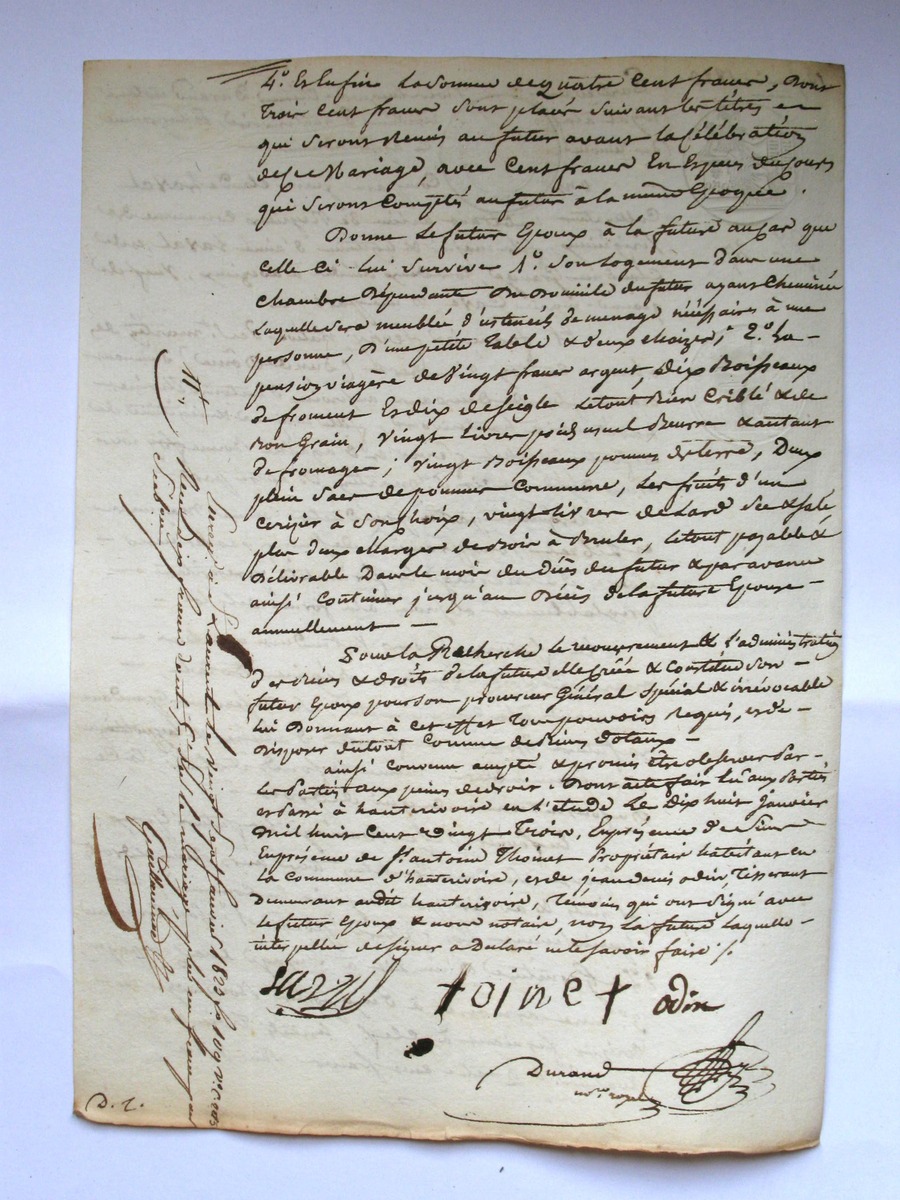 4.° Et Enfin La Somme de quatre Cent francs, Dont
Trois Cent francs Sont placés Suivant les titres en
qui Seront Remis au futur avant la Célébration
de Ce Mariage, avec Cent francs En Espèces du Cours
qui Seront Comptés au futur à la même Epoque.
Donne Le futur Epoux à la future au Cas que
Celle Ci Lui Survive 1.° Son Logement dans une
Chambre Dépendante Du Domicile du futur ayant Cheminée
Laquelle Sera meublée d'ustenciles de menage nécéssaires à une
personne, D'une petite Table & deux chaizes; 2.° La
pension viagère de Vingt francs argent, Dix Boisseaux
de froment Et dix de Seigle Le tout Bien Criblé & de
Bon Grain, Vingt Livres poids usuel Beurre & autant
de fromages; Vingt Boisseaux pommes de terre, Deux
plein Sacs de pommes Commune, Les fruits d'un
Cerizier à Son Choix, vingt Livres de Lard Sec & Salé
plus deux charges de Bois à Bruler, Le tout payable &
Délivrable Dans le mois du décès du futur & par avance
ainsi Continuer jusqu'au Décès de la future Epouse
annuellement
Pour la Recherche Le recouvrement & L'administration
des Biens & droits de la future elle Créée & Constitue Son
futur Epoux pour Son procureur Général Spécial & irrévocable
Lui Donnant à Cet effet Tous pouvoirs Requis, et de
Disposer du tout Comme de Biens dotaux
ainsi Convenu accepté & promis être observer Par
Les Parties aux peines de droit. Dont acte fait Lu aux Parties
et passé à hauterivoire en L'étude Le Dix huit Janvier
Mil huit Cent Vingt Trois, En présence de Sieur
En présence de S.r antoine Thoinet Propriétaire habitant en
La Commune d'hauterivoire, et de jean denis odin, Tisserant
Demeurant audit hauterivoire, Témoins qui ont Signé avec
Le futur Epoux & nous notaire, non La future Laquelle
interpellée de Signer a Déclaré ne le Savoir faire /.
toinet odin
Durand
no.re royal
Enreg.é à S.t Laurent le vingt Sept janvier 1823 f.o 109 v.o C. 2 et 3
Reçu Dix francs dont
le mariage, plus un franc
D. 2.